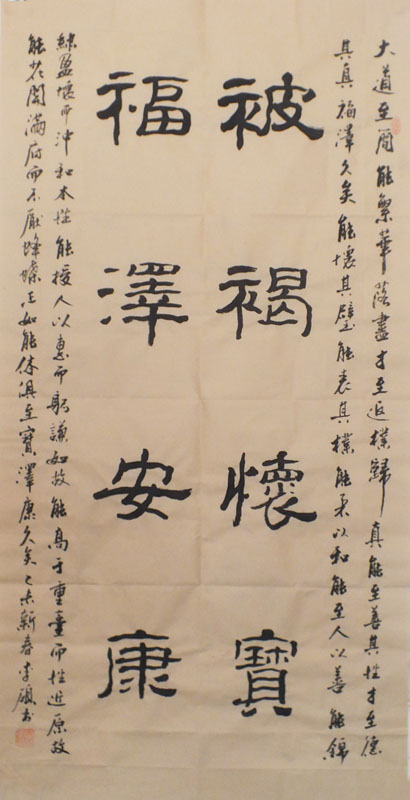 大道至简能繁華落盡才至返樸歸真能至善其性才至德
其真福澤久矣能懷其璧能表其樸能柔以和能至人以善能錦
被褐懷寶
福澤安康
盈懷而沖和本性能授人以惠而躬謙如故能高于重臺而性近原故
能花開滿府而不厭蜂蝶正如能俱至寶澤康久矣乙未新春李碩书